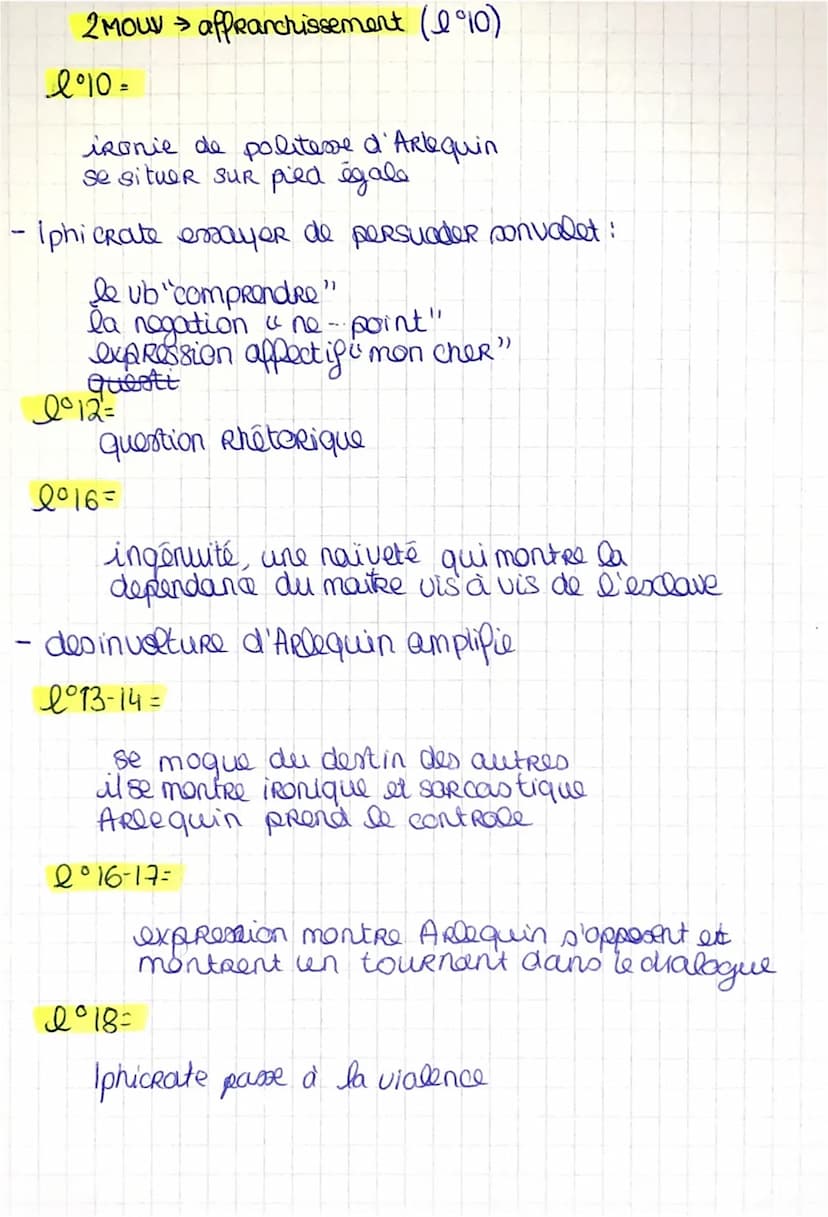 2MOUV → affranchissement (l°10)
l°10 =
ironie de politesse d'Arlequin
se situer sur pied égale
- Iphicrate essayer de persuader sonvalet :
le vb "comprendre"
la negation "ne -- point"
expression affectif "mon cher"
questi
l°12=
question rhétorique
l°16=
ingénuité, une naïveté qui montre la
dependance du maitre vis à vis de l'esclave
- desinvolture d'Arlequin amplifie
l°13-14=
se moque du destin des autres
il se montre ironique et sarcastique
Arlequin prend le controle
l°16-17=
expression montre Arlequin s'opposent et
montrent un tournant dans le dialogue
l°18=
Iphicrate passe à la violence